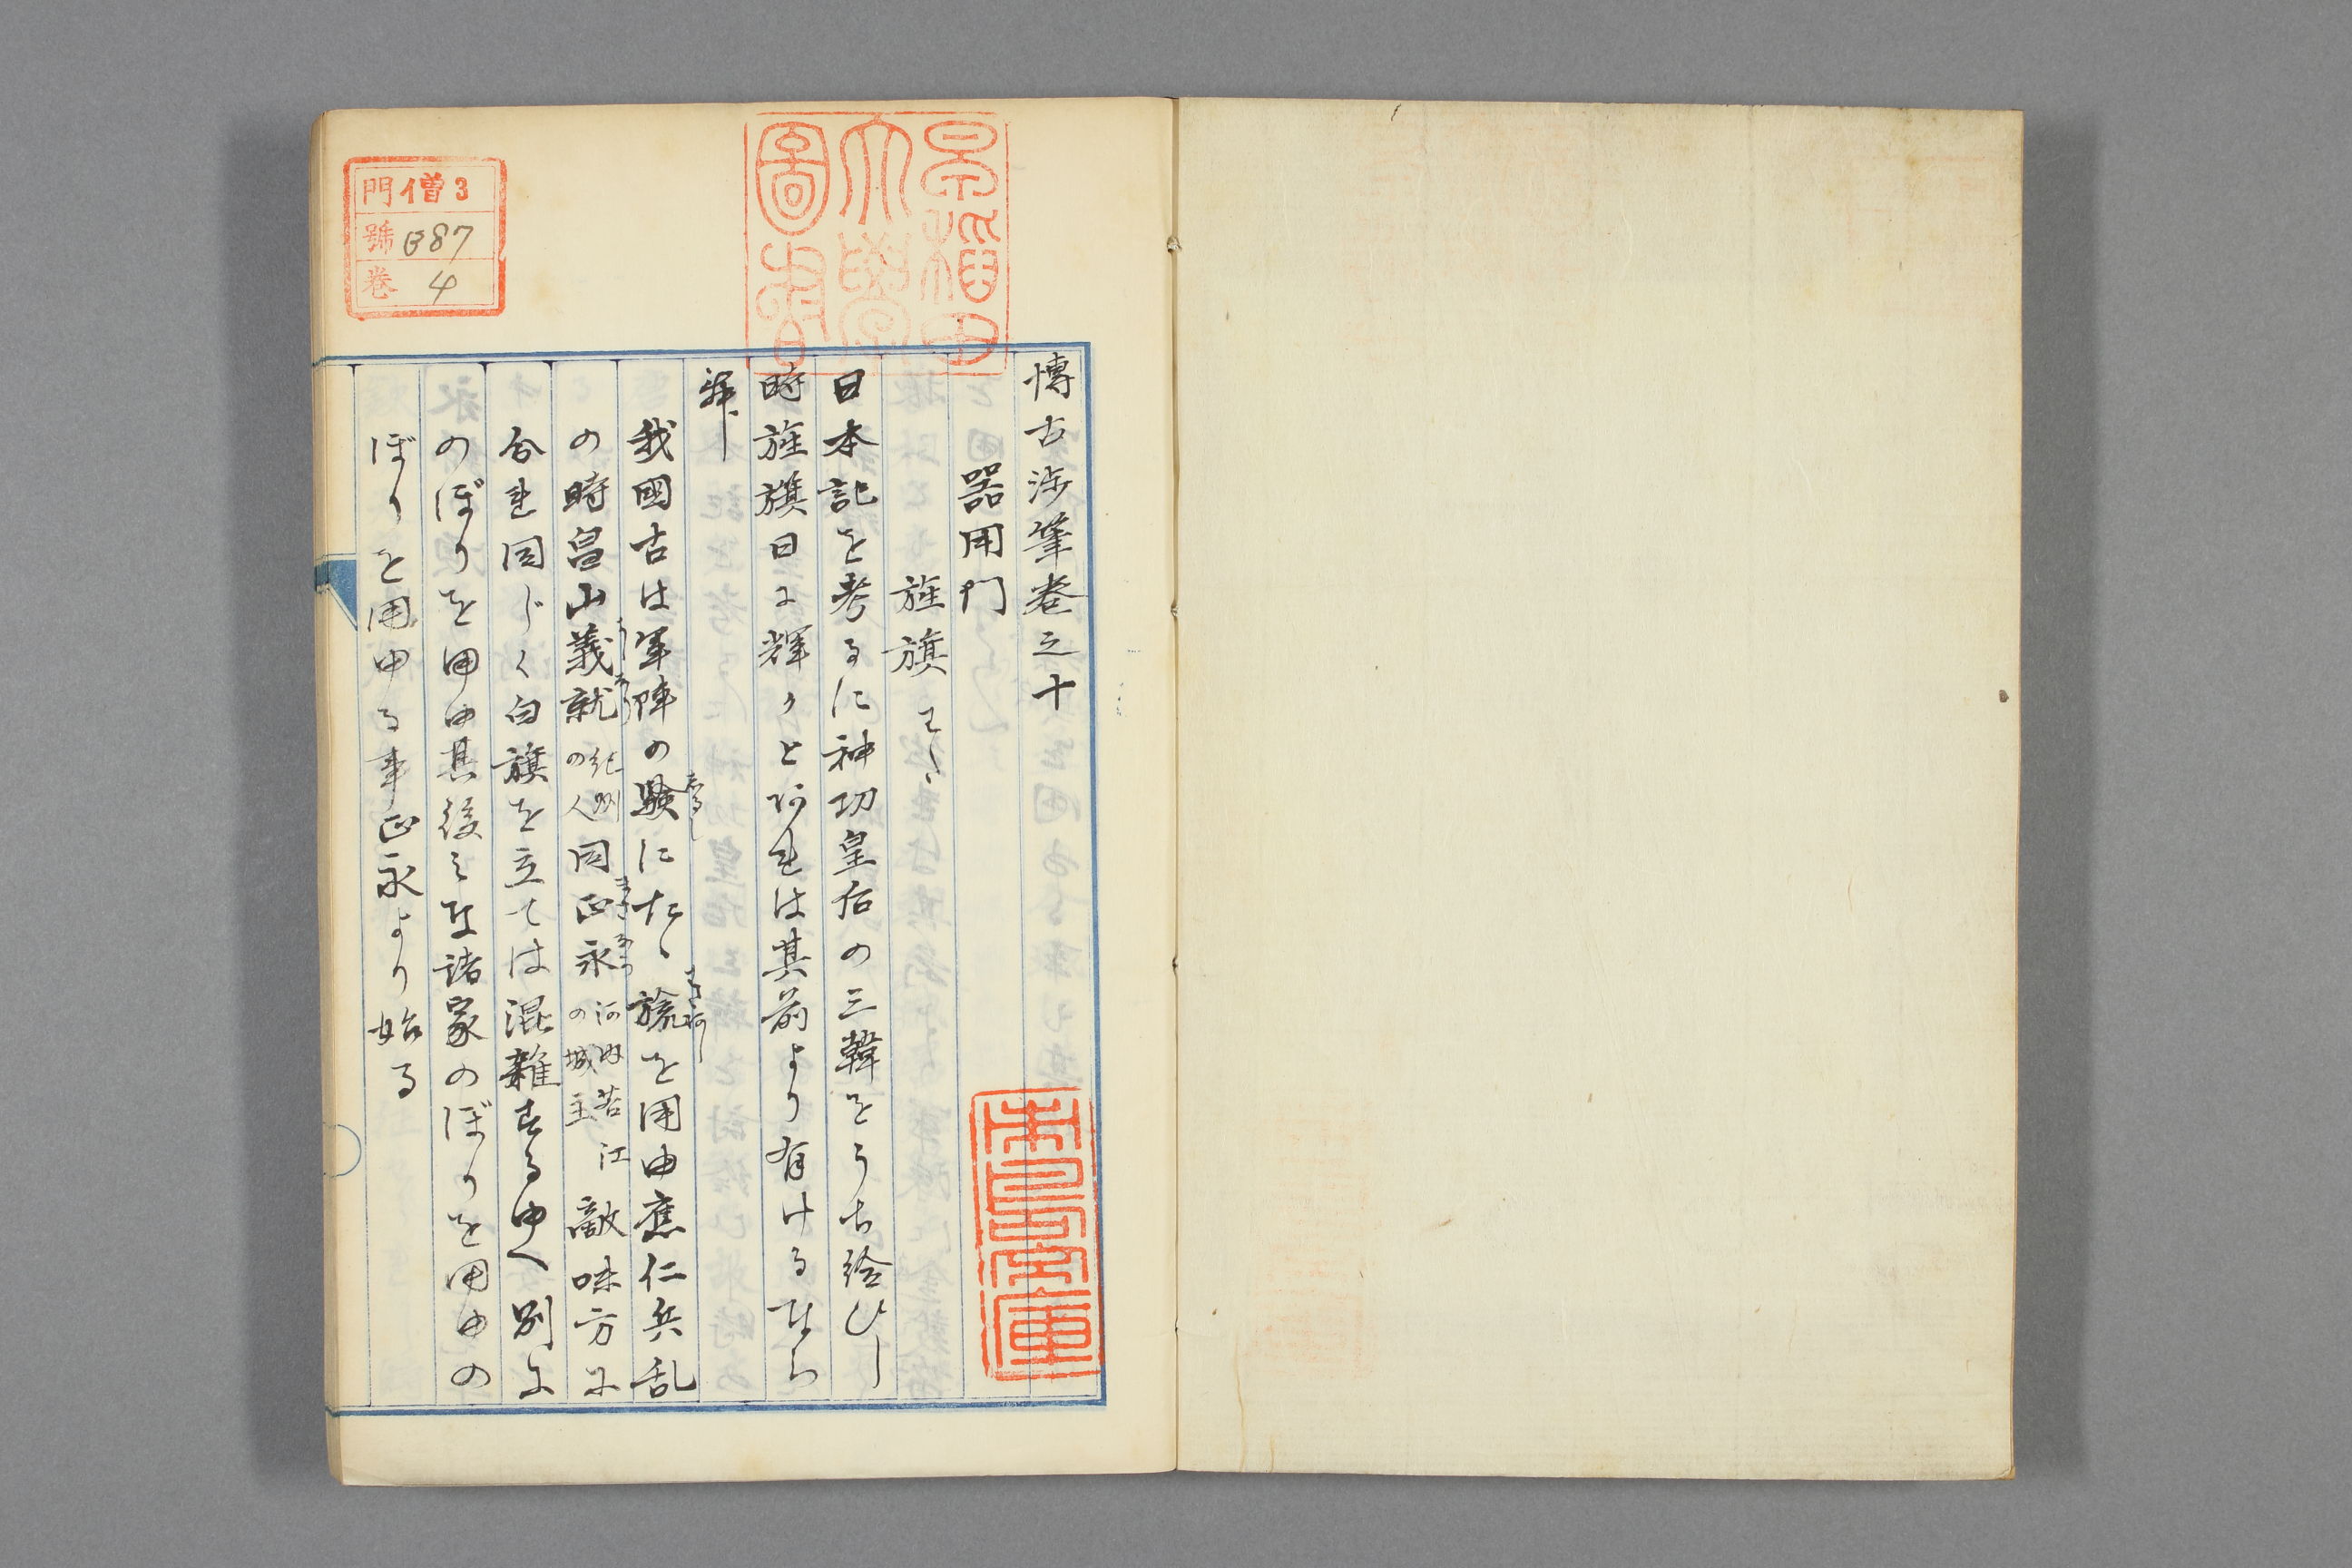 博古渉筆巻之十
器用門
旌旗
日本記を考るに神功皇后の三韓をうち給ひし
時旌旗日に輝くとあれは其前より有けるなら
ん
我國古は軍陣の驗にたゝ旒を用ゆ應仁兵乱
の時畠山義就紀州の人同正永河内若江の城主敵味方に
合せ同じく白旗を立ては混雜する由へ別に
のぼりを用ゆ其後みな諸家のぼりを用ゆの
ぼりを用ゆる事正永より始る
早稲田大學圖書
門 僧3
號 B87
巻 4